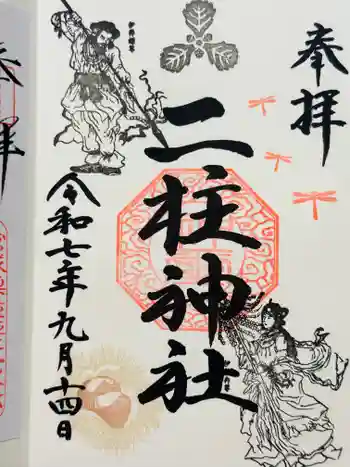 奉拝
二柱神社
令和七年九月十四日
奉拝